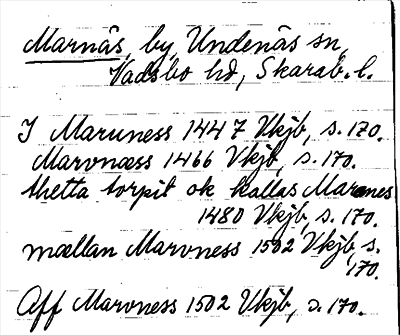 Marnäs, by, Undenäs sn,
Vadsbo hd, Skarab. l.
I Maruness 1447 Vkjb, s. 170.
Marvnæss 1466 Vkjb, s. 170.
thetta torpit ok kallas Marenes
1480 Vkjb, s. 170.
mællan Marvness 1502 Vkjb, s.
170.
Aff Marvness 1502 Vkjb, s. 170.